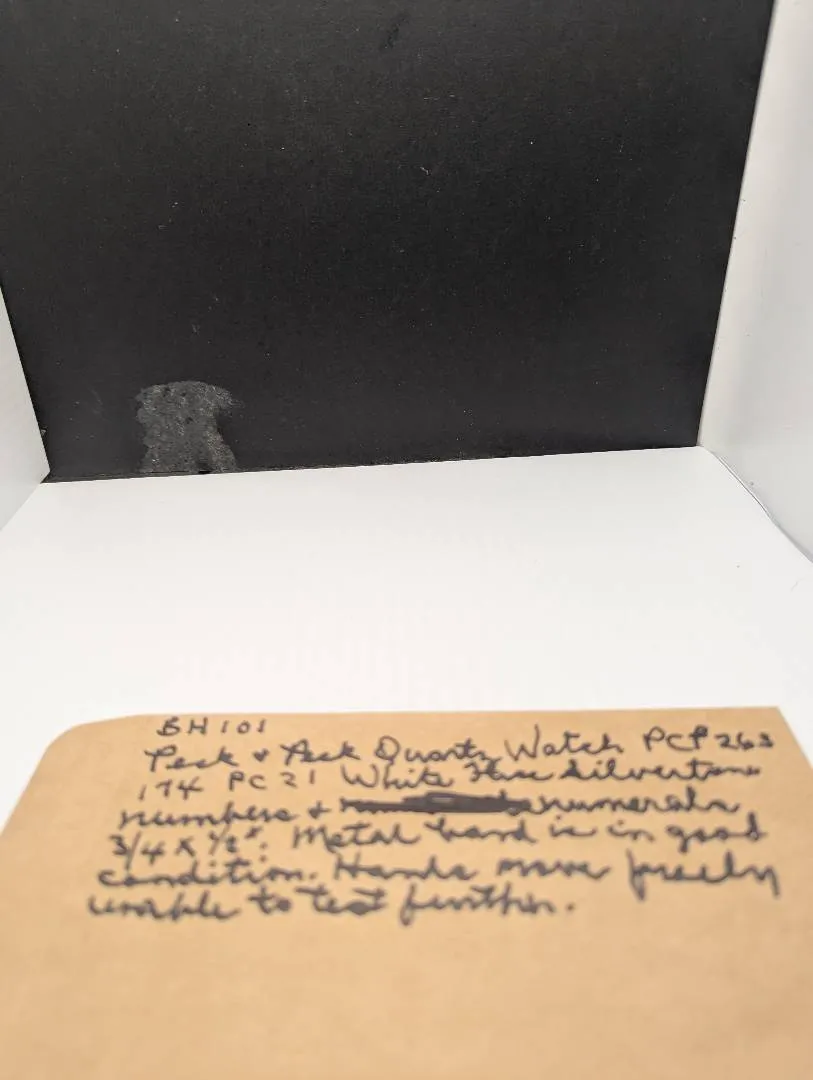 BH101
Peck & Peck Quartz Watch PCP263
174 PC21 White Face Silvertone
numbers & numerals
3/4 x 1/2". Metal band is in good
condition. Hands move freely
unable to test further.